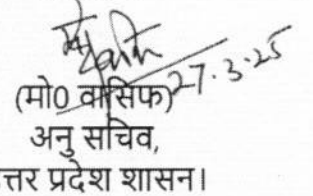 27.3.25
(मो0 वासिफ)
अनु सचिव,
त्तर प्रदेश शासन।